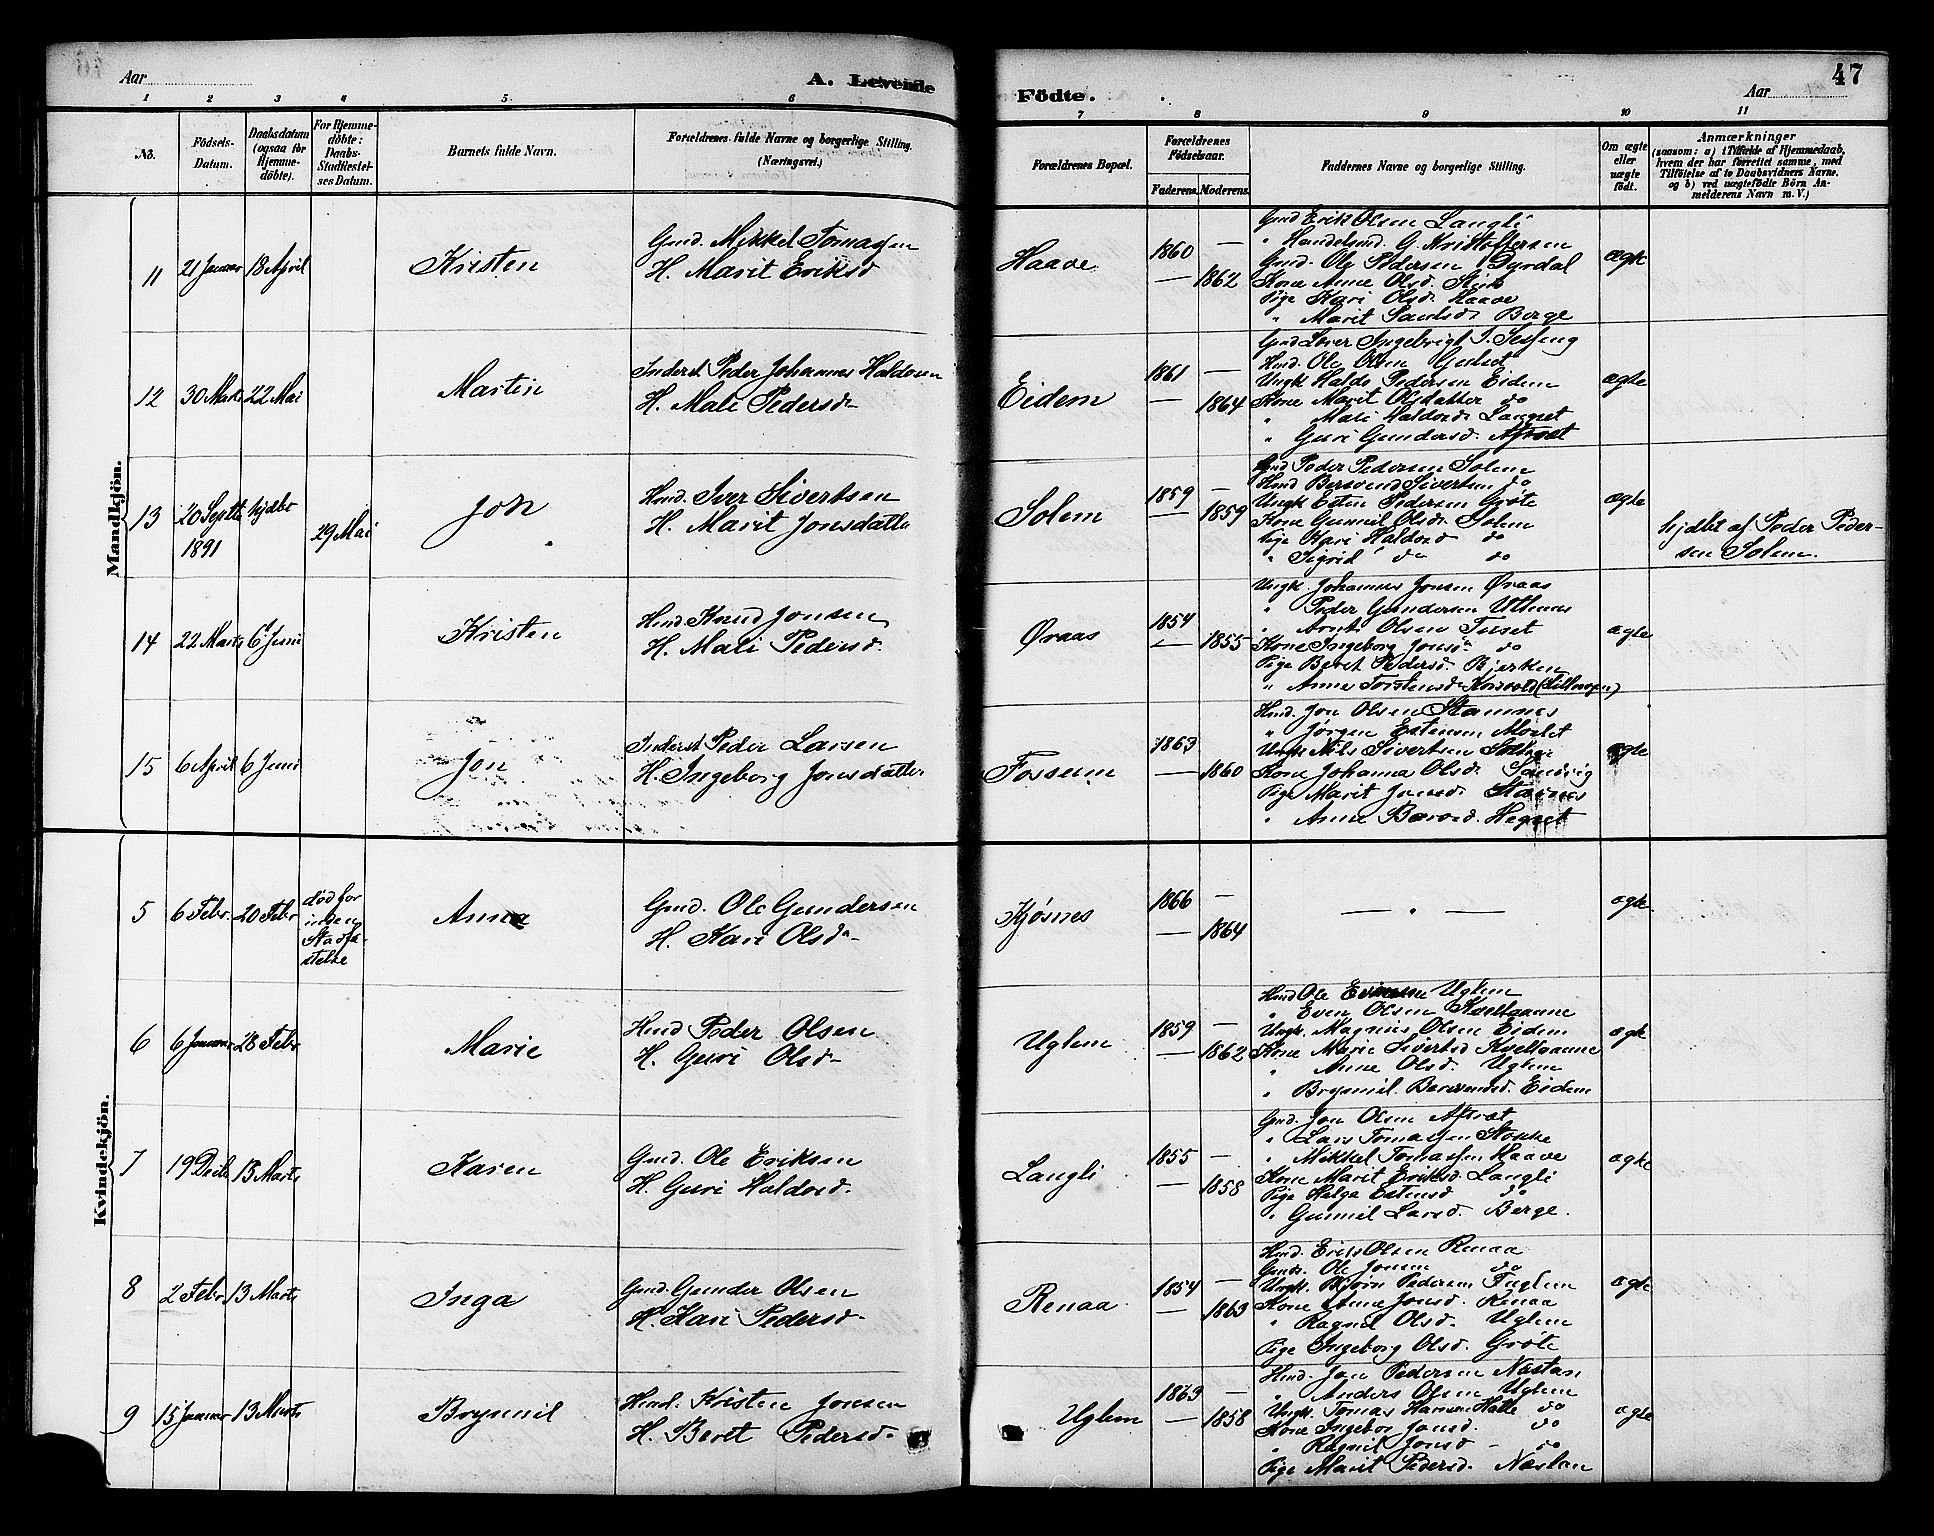 Aar
A. Levende
Födte.
Aar
47
1 2 3 4 5 6 7 8 9 10 11
No.
Fødsels-
Datum.
Daabsdatum
(ogsaa for
Hjemme-
döbte).
For Hjemme-
döbte:
Daabs-
Stadfæstel-
ses Datum.
Barnets fulde Navn.
Forældrenes fulde Navne og borgerlige Stilling.
(Næringsvei.)
Forældrenes Bopæl.
Forældrenes
Fødselsaar.
Faderens. Moderens.
Faddernes Navne og borgerlige Stilling.
Om ægte
eller
uægte
födt.
Anmærkninger
(saasom: a) i Tilfælde af Hjemmedaab,
hvem der har forrettet samme, med
Tilföielse af to Daabsvidners Navne,
og b) ved uægtefødte Börn An-
melderens Navn m. V.)
Mandkjön.
11 21 Januar 18 April Kristen
Gmd. Mikkel Tomassen
H. Marit Eriksd
Haave 1860 —
— 1862
Gmd Erik Olsen Langli
" Handelsmd. G. Kristoffersen
Gmd. Ole Pedersen Dyrdal
Kone Anne Olsd.
Pige Kari Olsd. Haave
" Marit Paulsd. Berge
ægte
12 30 Marts 22 Mai Martin
Inderst Peder Johannes Haldosen
H. Mali Pedersd.
Eidem 1861 —
— 1864
Gmd Ingebrigt J.
Hmd. Ole Olsen Gulset
Ungk Haldo Pedersen Eidem
Kone Marit Olsdatter do
" Mali Haldosd. Langset
" Guri Gundersd. Aftret
ægte
13 20 Septbr hjdbt
1891 29 Mai
Jon
Hmd. Iver Sivertsen
H. Marit Jonsdatter
Solem 1859 —
— 1859
Gmd Peder Pedersen Solem
Hmd Bersvend Sivertsen do
Ungk Esten Pedersen Grøte
Kone Gunnil Olsd. Solem
Pige Kari Haldosd do
" Sigrid do do
ægte
hjdbt af Peder Peder-
sen Solem.
14 22 Marts 6 Juni Kristen
Hmd Knud Jonsen
H. Mali Pedersd.
Øraas 1854
— 1855
Ungk Johannes Jonsen Øraas
" Peder Gundersen Uthuus
" Arnt Olsen Tuset
Kone Ingeborg Jonsd do
Pige Beret Pedersd. Bjerken
" Anne Torstensd.
ægte
15 6 April 6 Juni Jon
Inderst Peder Larsen
H. Ingeborg Jonsdatter
Fossum 1863
— 1860
Hmd. Jon Olsen Stamnes
" Jørgen Estensen Moslet
Ungk Nils Sivertsen
Kone Johanna Olsd. Sandvig
Pige Marit Jonsd. Stamnes
" Anne Barosd. Hegset
ægte
Kvindekjön.
5 6 Febr. 20 Febr
død for
inden
Stadfæ-
stelse
Anna
Gmd. Ole Gundersen
H. Kari Olsd.
Kjøsnes 1866 —
— 1864
— " —
ægte
6 6 Januar 28 Febr Marie
Hmd Peder Olsen
H. Guri Olsd.
Uglem 1859 —
— 1862
Hmd Ole Evensen Uglem
" Even Olsen Kvelloanne
Ungk. Magnus Olsen Eidem
Kone Marie Sivertsd Kvelloanne
" Anne Olsd. Uglem
" Brynnil Bersvendsd. Eidem
ægte
7 19 Decbr 13 Marts Karen
Gmd. Ole Eriksen
H. Guri Haldosd.
Langli 1855 —
— 1858
Gmd. Jon Olsen Aftret
" Lars Tomassen Stokke
" Mikkel Tomassen Haave
Kone Marit Eriksd. Langli
Pige Helga Estensd do
" Gunnil Larsd. Berge.
ægte
8 2 Febr 13 Marts Inga
Gmd Gunder Olsen
H. Kari Pedersd.
Renaa 1854 —
— 1863
Hmd. Erik Olsen Renaa
Gmd. Ole Jonsen do
Ungk. Bjørn Pedersen Fuglem
Kone Anne Jonsd. Renaa
" Ragnil Olsd. Uglem
Pige Ingeborg Olsd. Grøte
ægte
9 15 Januar 13 Marts Brynnil
Hmd. Kristen Jonsen
H. Beret Pedersd.
Uglem 1863 —
— 1858
Hmd. Jon Pedersen Næstan
" Anders Olsen Uglem
Ungk. Tomas Hansen do
Kone Ingebor Jonsd. do
" Ragnil Jonsd — do
Pige Marit Pedersd. Næstan
ægte